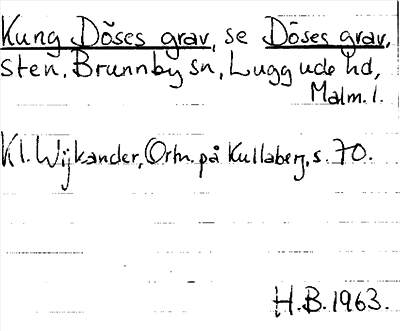 Kung Döses grav, se Döses grav,
sten, Brunnby sn, Luggude hd,
Malm. l.
Kl. Wijkander, Ortn. på Kullaberg, s. 70.
H.B. 1963.